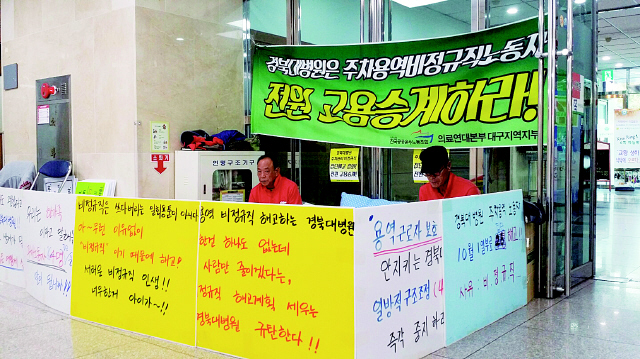 경북대병원은 주차용역비정규직노동자
전원 고용승계하라!
의료연대본부 대구지역지부
인명구조기구
비정규직은 쓰다버리는 일회용품이 아니다
아~무런 이유없이
"비정규직" 이기 때문에 해고!
서러운 비정규직 인생!!
너무한거 아이가~!!
용역 비정규직 해고하는 경북대병원
한건 하나도 없는데
사람만 줄이겠다는,
정규직 해고계획 세우는
경북대병원 규탄한다!!
용역근로자 보호
안지키는 경북
일방적 구조조정
즉각 중지하라
경북대병원
10월 1일부
사유 : 비.정규직